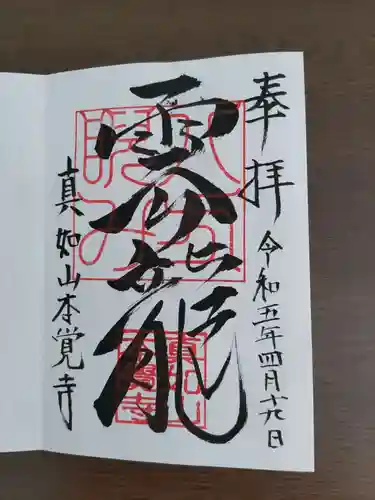 奉拝
令和五年四月十九日
雲龍
真如山本覚寺